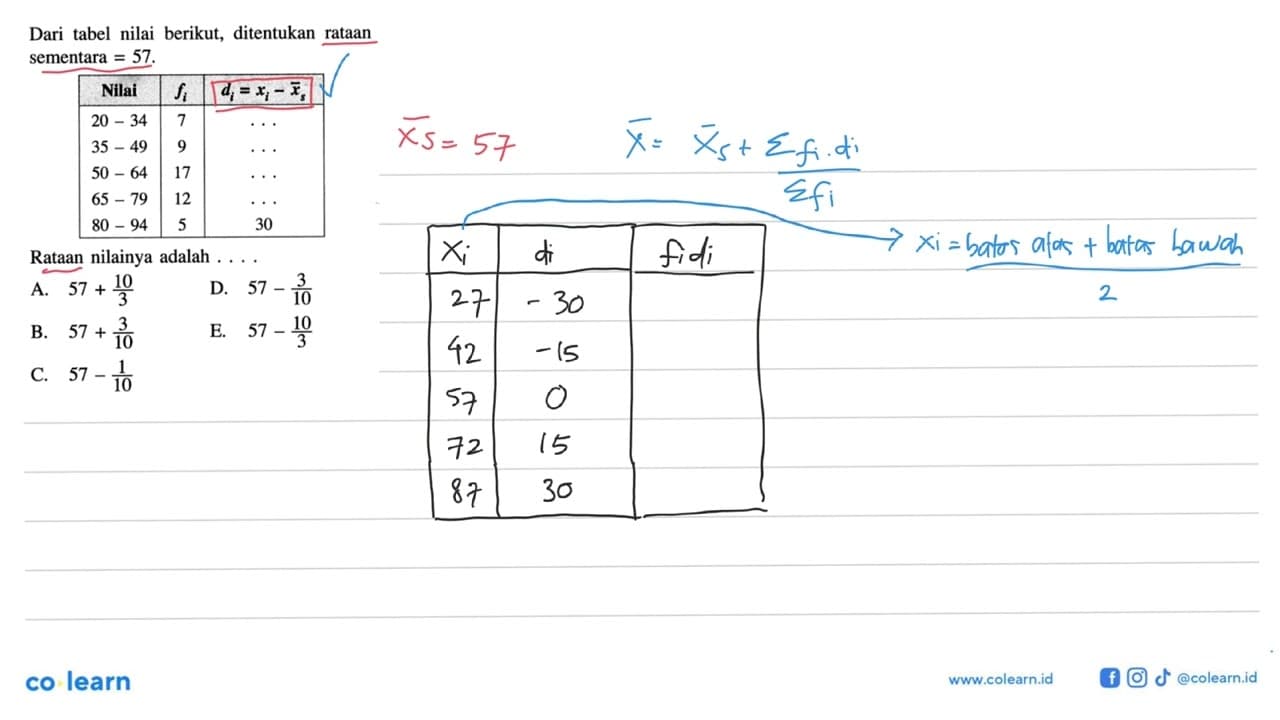 Dari tabel nilai berikut, ditentukan rataan
sementara = 57.
Nilai fᵢ dᵢ = xᵢ – x̄ₛ
20 – 34 7 ...
35 – 49 9 ...
50 – 64 17 ...
65 – 79 12 ...
80 – 94 5 30
Rataan nilainya adalah . . . .
A. 57 + 10/3
B. 57 + 3/10
C. 57 – 1/10
D. 57 – 3/10
E. 57 – 10/3
x̄s = 57
x̄ = x̄s + Σfi.di / Σfi
xi = batas atas + batas bawah / 2
Xi di fidi
27 -30
42 -15
57 0
72 15
87 30
co learn
www.colearn.id
@colearn.id